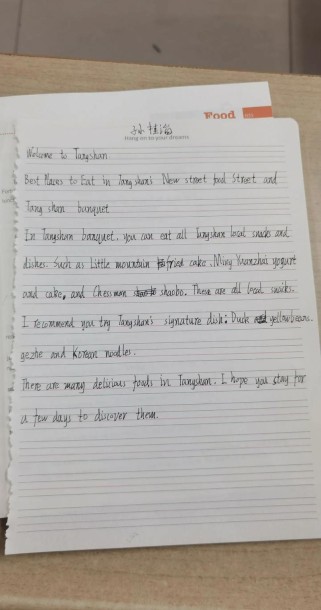 Food
Hang on to your dreams
Welcome to Tangshan
Best Places to Eat in Tangshan's New street food Street and
Tang shan banquet
In Tangshan banquet, you can eat all Tangshan local snacks and
dishes. Such as Little mountain fried cake, Ming Yuanzhai yogurt
and cake, and Chessman shaobo. These are all local snacks.
I recommend you try Tangshan's signature dish: Duck yellow beans.
gezhe and Korean noodles.
There are many delicious foods in Tangshan. I hope you stay for
a few days to discover them.